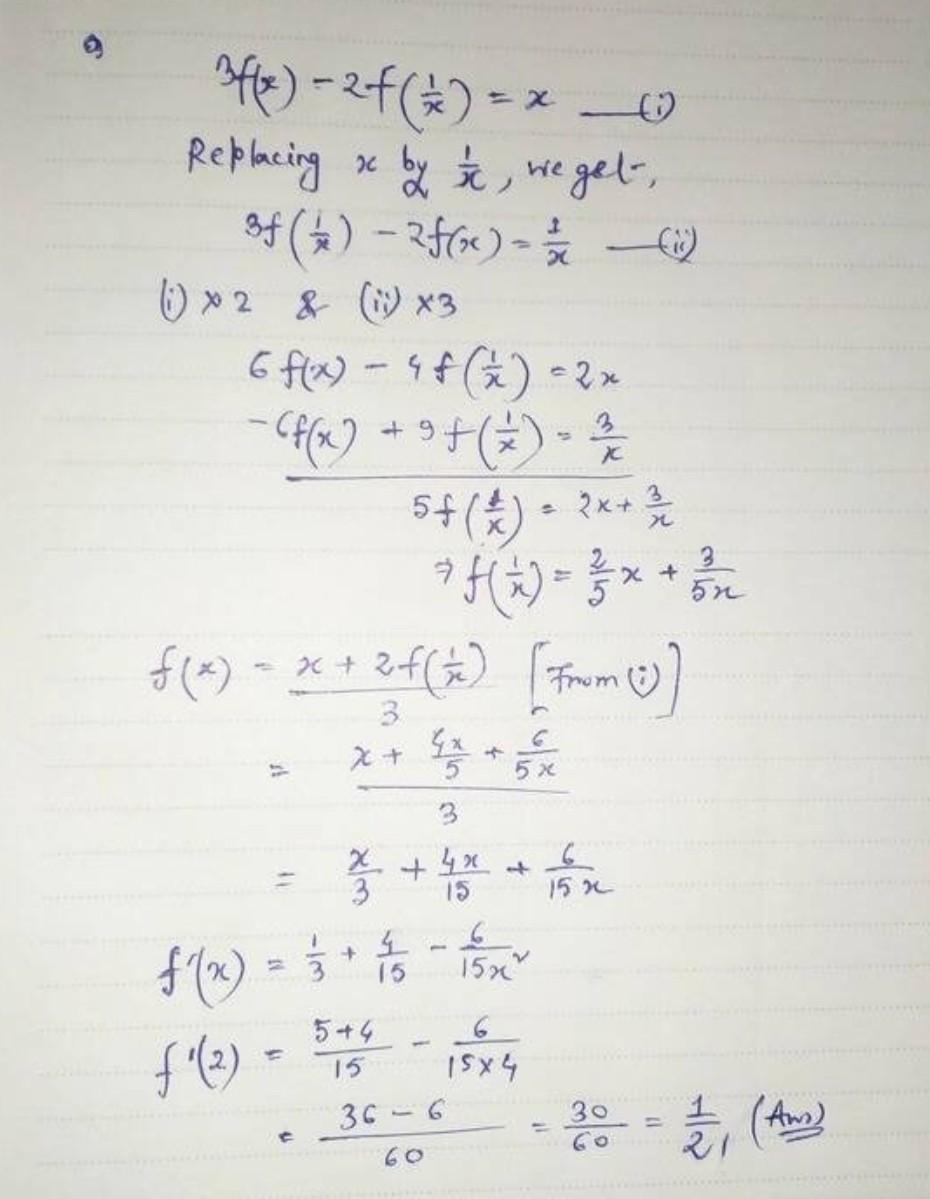 3f(x) - 2f(1/x) = x —(i)
Replacing x by 1/x, we get,
3f(1/x) - 2f(x) = 1/x —(ii)
(i) × 2 & (ii) × 3
6f(x) - 4f(1/x) = 2x
-6f(x) + 9f(1/x) = 3/x
5f(1/x) = 2x + 3/x
⇒ f(1/x) = 2/5 x + 3/5x
f(x) = x + 2f(1/x) / 3 [From (i)]
= x + 4x/5 + 6/5x / 3
= x/3 + 4x/15 + 6/15x
f'(x) = 1/3 + 4/15 - 6/15x²
f'(2) = 5+4/15 - 6/15×4
= 36-6/60 = 30/60 = 1/2, (Ans)